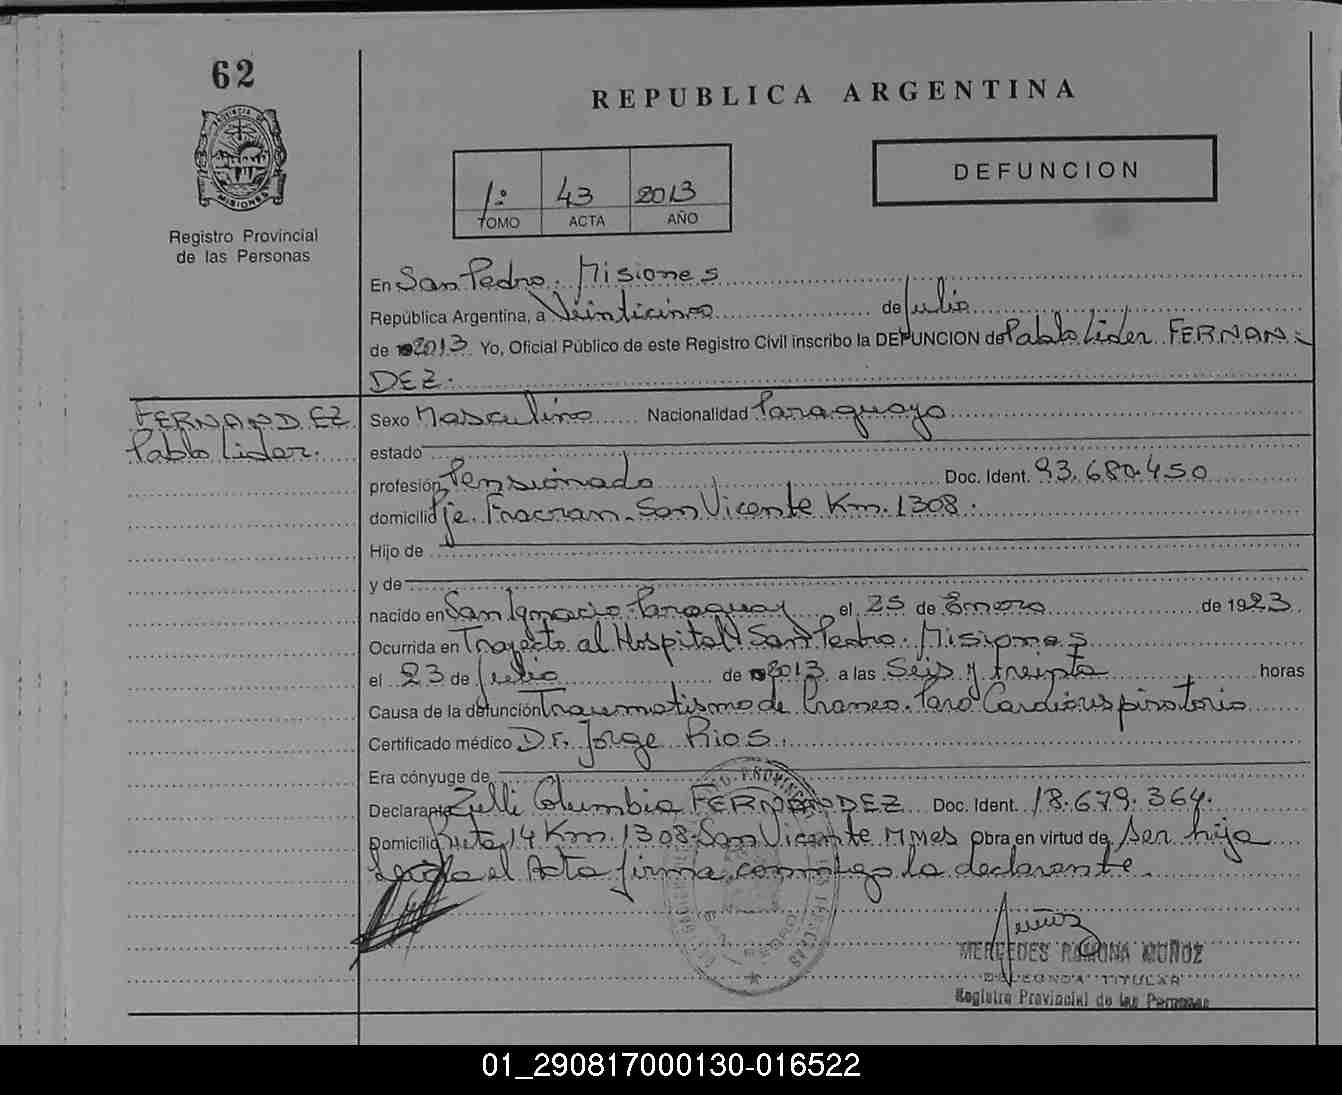 62
PROVINCIA DE
MISIONES
Registro Provincial
de las Personas
REPUBLICA ARGENTINA
1º 43 2013
TOMO ACTA AÑO
DEFUNCION
En San Pedro. Misiones
República Argentina, a Veinticinco de Julio
de 2013 Yo, Oficial Público de este Registro Civil inscribo la DEFUNCION de Pablo Lider FERNAN-
DEZ.
FERNANDEZ
Pablo Lider.
Sexo Masculino Nacionalidad Paraguayo
estado
profesión Pensionado Doc. Ident. 93.680.450
domicilio Pje. Fracran. San Vicente Km. 1308.
Hijo de
y de
nacido en San Ignacio-Paraguay el 25 de Enero de 1923
Ocurrida en Trayecto al Hospital San Pedro. Misiones
el 23 de Julio de 2013 a las Seis y treinta horas
Causa de la defunción Traumatismo de Craneo. Paro Cardiorespiratorio
Certificado médico Dr. Jorge Rios.
Era cónyuge de
Declarante Zulli Columbia FERNANDEZ Doc. Ident. 18.679.364.
Domicilio Ruta 14 Km. 1308-San Vicente Mnes Obra en virtud de ser hija
Leída el Acta firma conmigo la declarante.
MERCEDES RAMONA MUÑOZ
DELEGADA TITULAR
Registro Provincial de las Personas
01_290817000130-016522